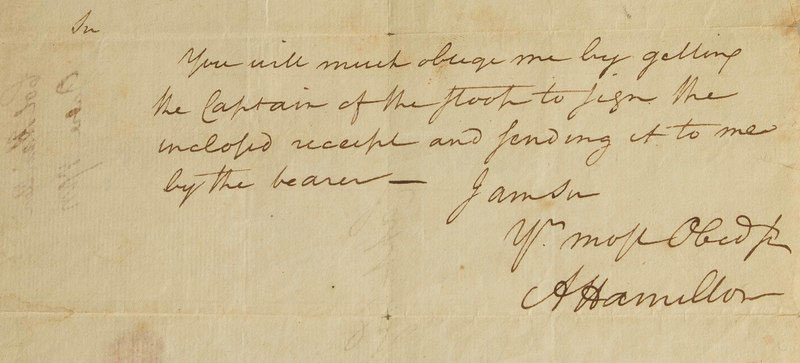 Sir
You will much oblige me by getting
the Captain of the sloop to sign the
inclosed receipt and sending it to me
by the bearer —
I am Sir
Yr. most Obed s
A Hamilton